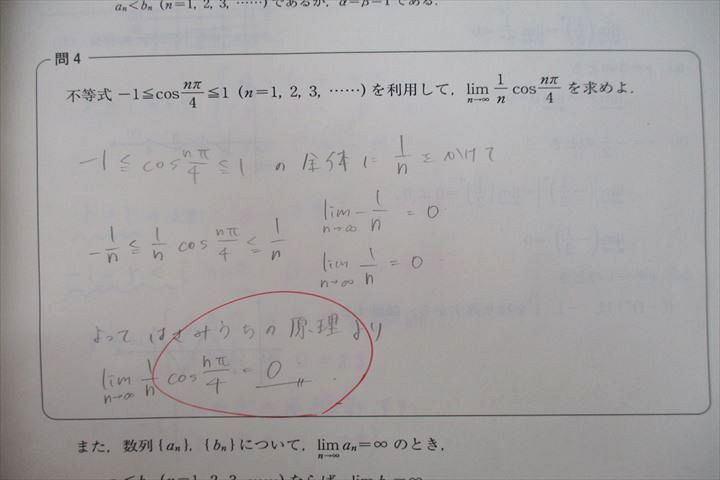 aₙ<bₙ (n=1, 2, 3, ……) であるが, α=β=1 である.
問4
不等式 −1≦cos nπ/4≦1 (n=1, 2, 3, ……) を利用して, lim n→∞ 1/n cos nπ/4 を求めよ.
−1 ≦ cos nπ/4 ≦ 1 の全体に 1/n をかけて
−1/n ≦ 1/n cos nπ/4 ≦ 1/n
lim n→∞ −1/n = 0
lim n→∞ 1/n = 0
よって はさみうちの原理より
lim n→∞ 1/n cos nπ/4 = 0
また, 数列{aₙ}, {bₙ}について, lim n→∞ aₙ=∞ のとき,
(n=1, 2, 3, ……) ならば, lim bₙ=∞